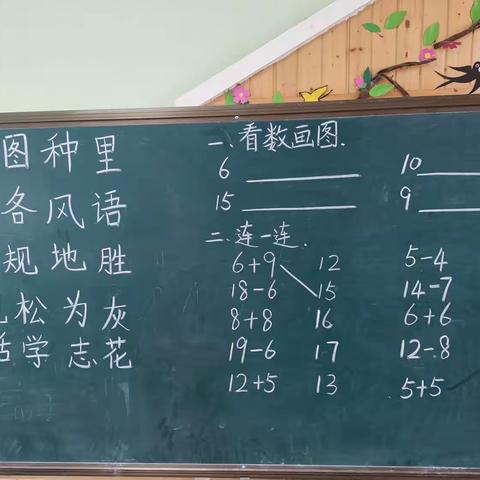 图种里
各风语
规地胜
松为灰
学志花
一、看数画图.
6 ____ 10 ____
15 ____ 9 ____
二、连一连.
6+9 12 5-4
18-6 15 14-7
8+8 16 6+6
19-6 17 12-8
12+5 13 5+5